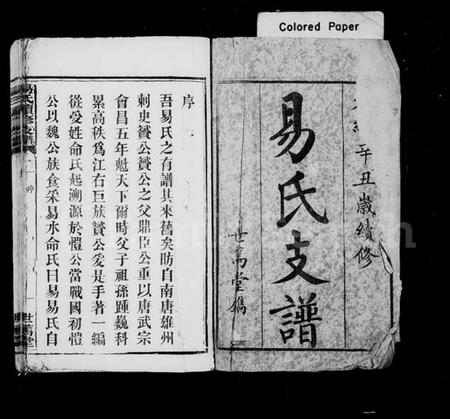 Colored Paper
辛丑歲續修
易氏支譜
世萬堂鐫
序
吾易氏之有譜其來舊矣昉自南唐雄州
刺史贇公贇公之父鼎臣公重以唐武宗
會昌五年魁天下爾時父子祖孫踵巍科
累高秩為江右巨族贇公爰是手著一編
從受姓命氏起溯源於愷公當戰國初愷
公以魏公族食采易水命氏曰易易氏自
世萬堂